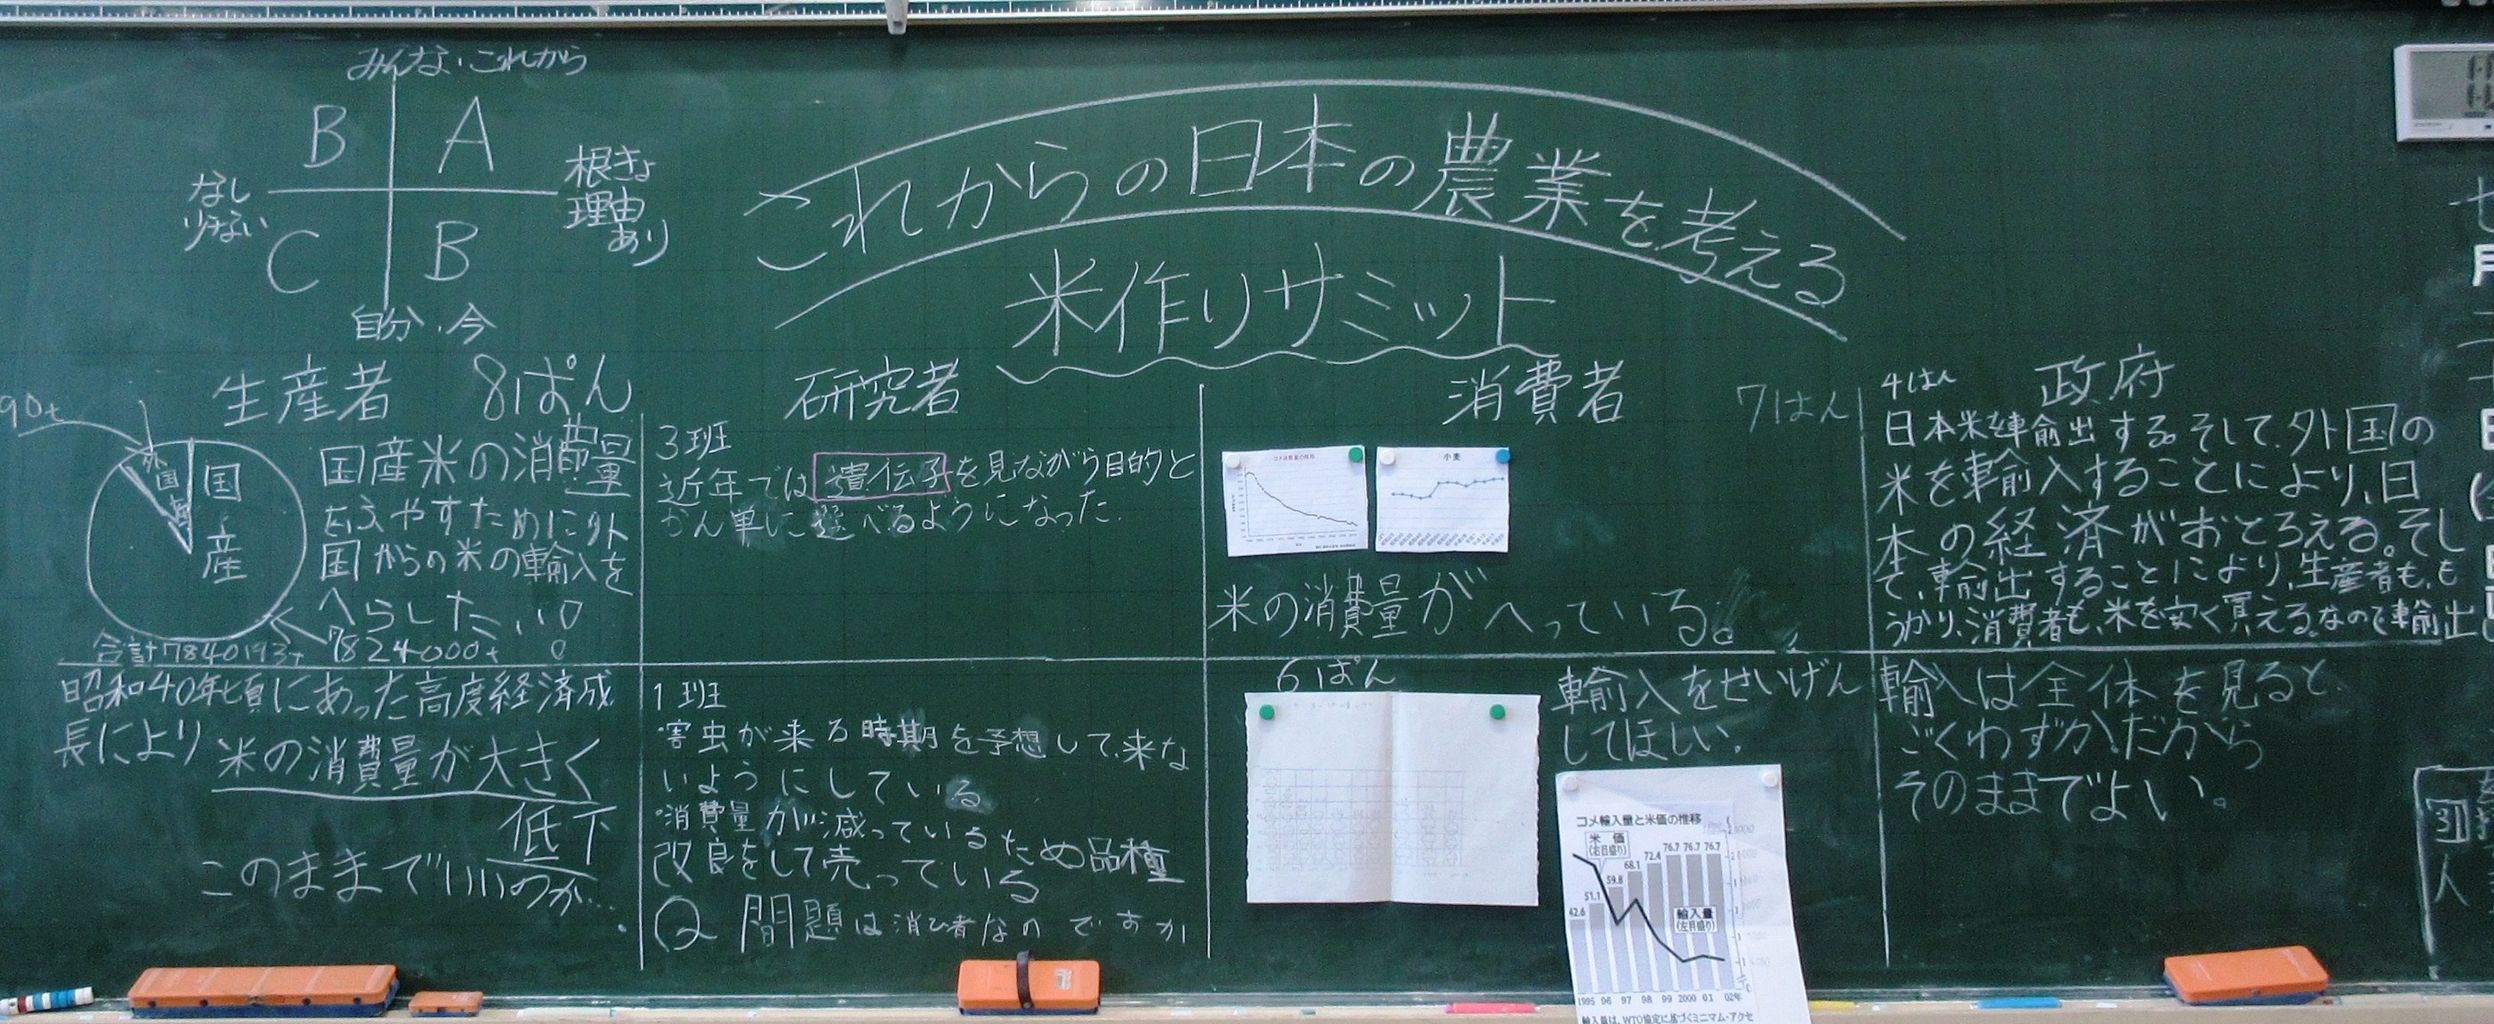 みんな・これから
B A
なし
少ない
根きょ
理由
あり
C B
自分・今
これからの日本の農業を考える
米作りサミット
生産者 8ぱん
90t
外国産
国産
国産米の消費量
をふやすために外
国からの米の輸入を
へらしたい。
合計7840193t 7824000t
昭和40年頃にあった高度経済成
長により
米の消費量が大きく
低下
このままでいいのか…
研究者
3班
近年では遺伝子を見ながら目的と
かん単に選べるようになった.
1班
・害虫が来る時期を予想して、来な
いようにしている
・消費量が減っているため品種
改良をして売っている
Q 問題は消ひ者なのですか
消費者 7はん
小麦
米の消費量がへっている。
6ぱん
輸入をせいげん
してほしい。
コメ輸入量と米価の推移
米価
(右目盛り)
42.6 51.1 59.8 68.1 72.4 76.7 76.7 76.7
輸入量
(左目盛り)
1995 96 97 98 99 2000 01 02年
輸入量は、WTO協定に基づくミニマム・アクセ
4はん 政府
日本米を輸出する。そして、外国の
米を輸入することにより、日
本の経済がおとろえる。そし
て、輸出することにより、生産者も、も
うかり、消費者も、米を安く買える。なので輸出
輸入は全体を見ると
ごくわずかだから
そのままでよい。
七
月
二
十
日
31
人